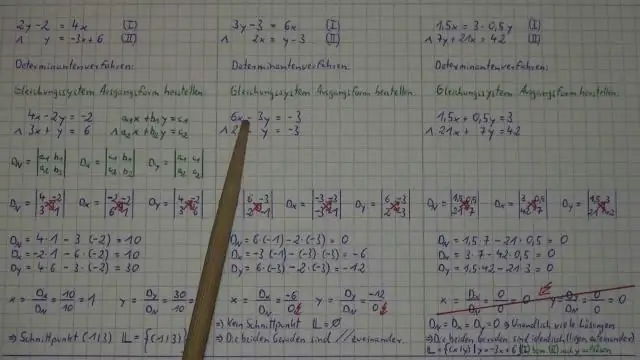 2y-2 = 4x (I)
∧ y = -3x+6 (II)
Determinantenverfahren:
Gleichungssystem Ausgangsform herstellen
4x - 2y = -2 a₁x + b₁y = c₁
∧ 3x + y = 6 ∧ a₂x + b₂y = c₂
D_N = |a₁ b₁ a₂ b₂| D_x = D_y =
D_N = |4 -2 3 1| D_x = |-2 -2 6 1| D_y = |4 -2 3 6|
D_N = 4·1 - 3·(-2) = 10
D_x = -2·1 - 6·(-2) = 10
D_y = 4·6 - 3·(-2) = 30
x = D_x/D_N = 10/10 = 1 y = D_y/D_N = 30/10
⇒ Schnittpunkt (1|3) 𝕃 = {(1|3)}
3y-3 = 6x (I)
∧ 2x = y-3 (II)
Determinantenverfahren:
Gleichungssystem Ausgangsform herstellen
6x - 3y = -3
∧ 2 y = -3
6 -3 2 -1 D_x = |-3 -3 -3 -1| D_y = |6 -3 2 -3|
D_N = 6·(-1) - 2·(-3) = 0
D_x = -3·(-1) - (-3)·(-3) = -6
D_y = 6·(-3) - 2·(-3) = -12
x = D_x/D_N = -6/0 y = D_y/D_N = -12/0
⇒ Kein Schnittpunkt 𝕃 = ∅
⇒ Die beiden Geraden sind // zueinander.
1,5x = 3 - 0,5y (I)
∧ 7y + 21x = 42 (II)
Determinantenverfahren:
Gleichungssystem Ausgangsform herstellen
1,5x + 0,5y = 3
∧ 21x + 7y = 42
D_N = |1,5 0,5 21 7| D_x = |3 0,5 42 7| D_y = |1,5 3 21 42|
D_N = 1,5·7 - 21·0,5 = 0
D_x = 3·7 - 42·0,5 = 0
D_y = 1,5·42 - 21·3 = 0
x = D_x/D_N = 0/0 = 0 y = D_y/D_N = 0/0 = 0
D_N = D_x = D_y = 0 ⇒ Unendlich viele Lösungen
⇒ Die beiden Geraden sind identisch/liegen aufeinander
𝕃 = {(x|y) | y = -3x+6 (I) bzw. (II) nach y auflösen